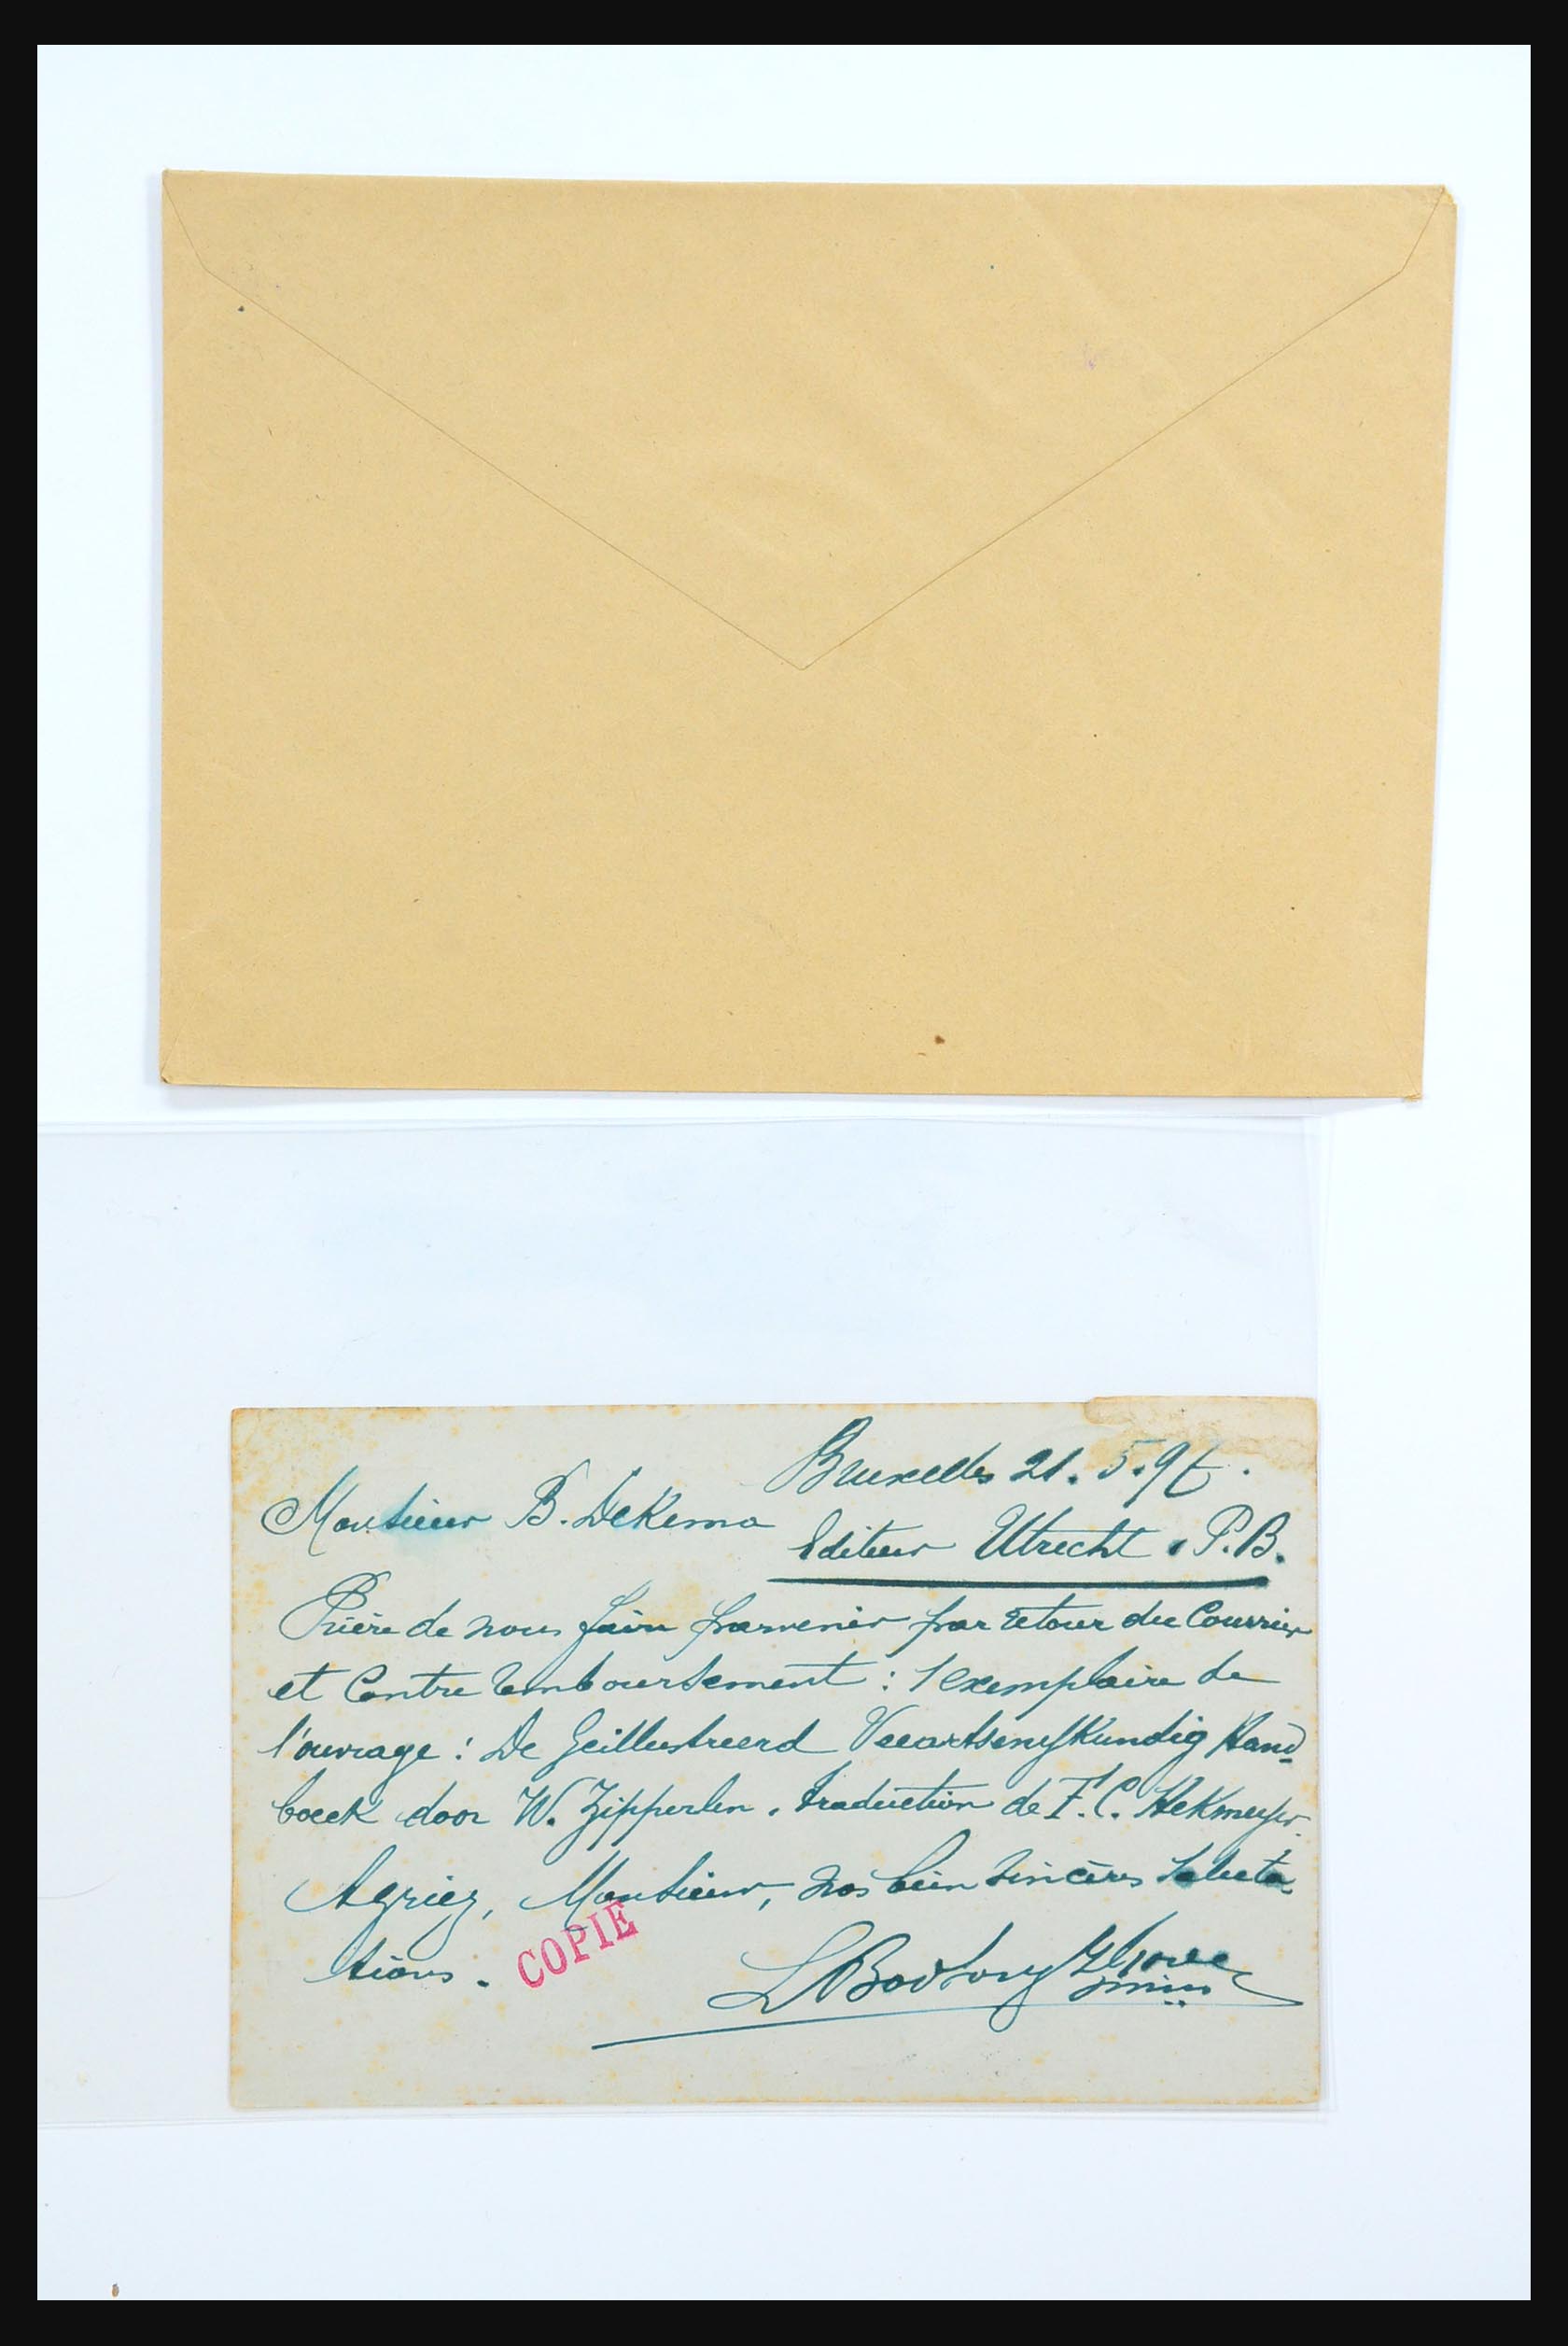 Bruxelles 21. 5. 9
Monsieur B. Dekema
Editeur Utrecht. P.B.
Prière de nous faire parvenir par retour du Courrier
et Contre Remboursement : 1 exemplaire de
l'ouvrage : De Geillustreerd Veeartsenijkundig Hand-
boeck door W. Zipperlen. traduction de F. C. Hekmeyer.
Agréez, Monsieur, nos bien sincères saluta-
tions.
COPIE